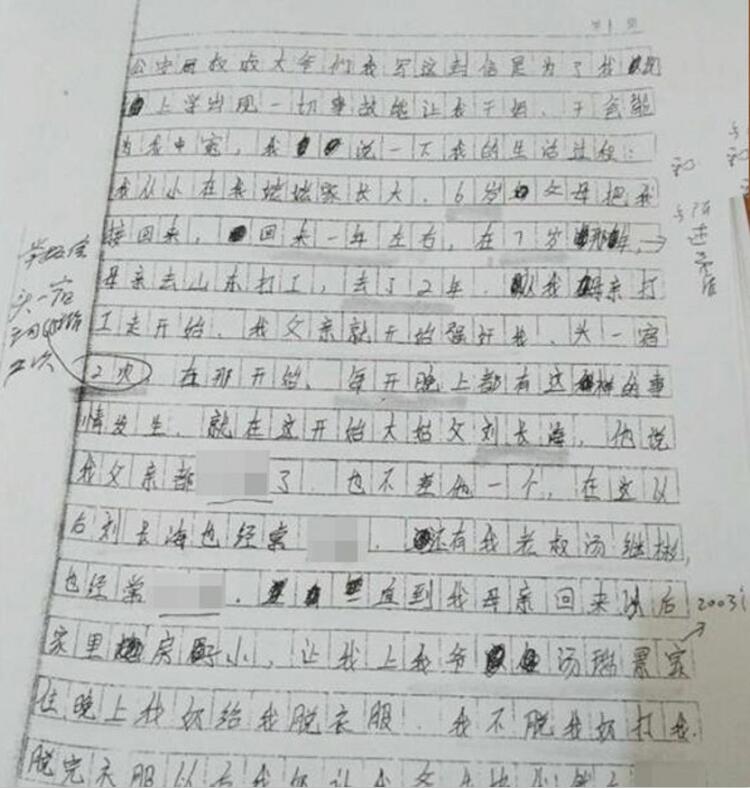 第1页
公安局叔叔大爷们我写这封信是为了我
上学出现一切事故能让我干妈、干爸能
为我申冤，我说一下我的生活过程：
我从小在我姥姥家长大，6岁父母把我
接回来，回来一年左右，在7岁那年，
母亲去山东打工，去了2年。从我母亲打
工走开始，我父亲就开始强奸我，头一宿
2次，在那开始，每天晚上都有这样的事
情发生，就在这开始大姑父刘长海，他说
我父亲都了，也不差他一个，在这以
后刘长海也经常，还有我老叔汤继彬，
也经常，一直到我母亲回来以后
家里房子小，让我上我爷汤瑞景家
住晚上我奶给我脱衣服，我不脱我奶打我，
脱完衣服以后我奶
头一宿
2次
2003